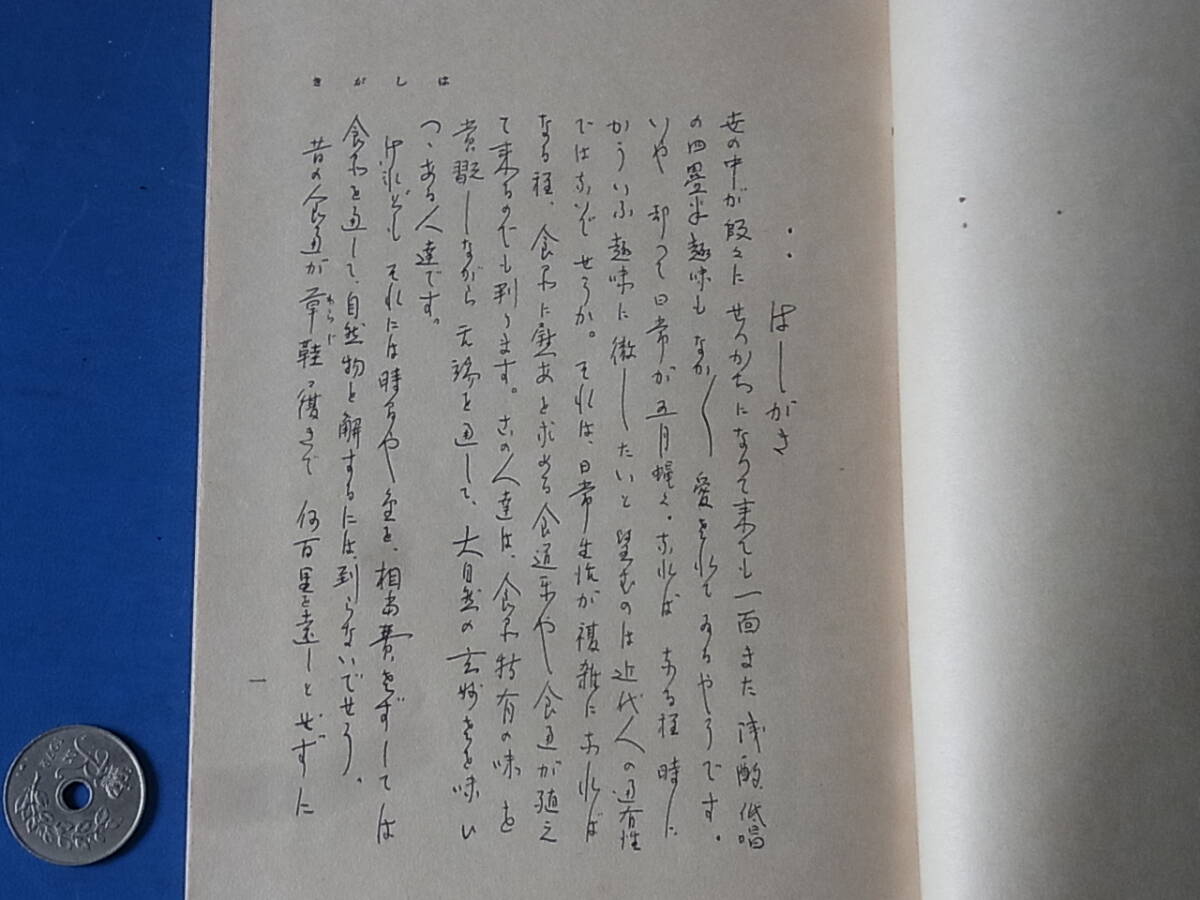 はしがき
世の中が段々にせつかちになつて来ても一面また浅酌低唱
の四畳半趣味もなか〳〵愛されてゐるやうです。
いや 却つて日常が五月蠅くなればなる程 時に
かういふ趣味に徹したいと望むのは近代人の通有性
ではないでせうか。それは、日常生活が複雑になれば
なる程、食品に慰安を求める食道楽や食通が殖え
て来るのでも判ります。この人達は、食品特有の味を
賞翫しながら 舌端を通して、大自然の玄妙さを味い
つゝある人達です。
けれども それには時間や金を、相当費さずしては
食品を通して、自然物を解するには、到らないでせう。
昔の食通が草鞋履きで 何百里を遠しとせずに
わらじ
はしがき
一